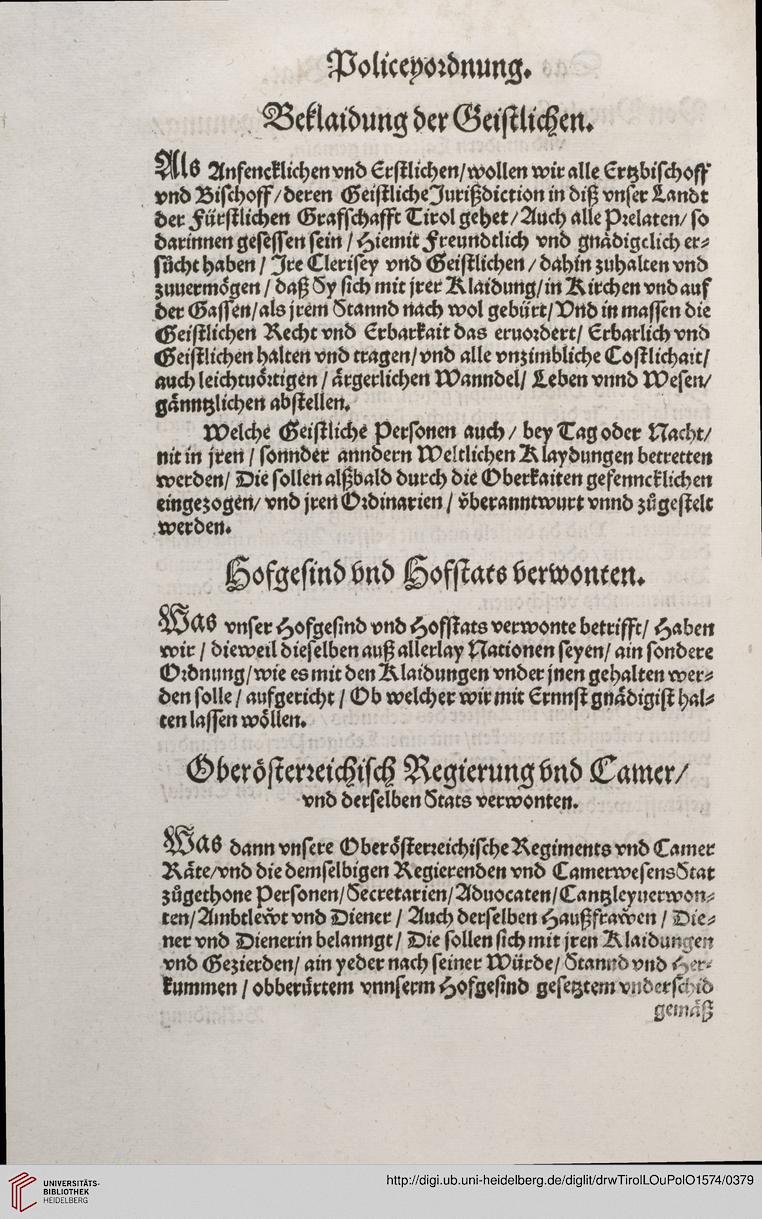 Policeyordnung.
Beklaidung der Geistlichen.
Als Anfencklichen vnd Erstlichen/ wollen wir alle Ertzbischoff
vnd Bischoff/ deren Geistliche Jurißdiction in diß vnser Landt
der Fürstlichen Grafschafft Tirol gehet/ Auch alle Prelaten/ so
darinnen gesessen sein/ Hiemit Freundtlich vnd gnädigclich er-
sücht haben/ Ire Clerisey vnd Geistlichen/ dahin zuhalten vnd
zuuermögen/ daß Sy sich mit jrer Klaidung/ in Kirchen vnd auf
der Gassen/ als jrem Stannd nach wol gebürt/ Vnd in massen die
Geistlichen Recht vnd Erbarkait das eruordert/ Erbarlich vnd
Geistlichen halten vnd tragen/ vnd alle vnzimbliche Costlichait/
auch leichtuörtigen/ ärgerlichen Wanndel/ Leben vnnd Wesen/
gänntzlichen abstellen.
Welche Geistliche Personen auch/ bey Tag oder Nacht/
nit in jren/ sonnder anndern Weltlichen Klaydungen betretten
werden/ Die sollen alßbald durch die Oberkaiten gefenncklichen
eingezogen/ vnd jren Ordinarien/ vberanntwurt vnnd zůgestelt
werden.
Hofgesind vnd Hofstats verwonten.
Was vnser Hofgesind vnd Hofstats verwonte betrifft/ Haben
wir/ dieweil dieselben auß allerlay Nationen seyen/ ain sondere
Ordnung/ wie es mit den Klaidungen vnder jnen gehalten wer-
den solle/ aufgericht/ Ob welcher wir mit Ernnst gnädigist hal-
ten lassen wöllen.
Oberösterreichisch Regierung vnd Camer/
vnd derselben Stats verwonten.
Was dann vnsere Oberösterreichische Regiments vnd Camer
Räte/ vnd die demselbigen Regierenden vnd Camerwesens Stat
zůgethone Personen/ Secretarien/ Aduocaten/ Cantzleyuerwon-
ten/ Ambtlewt vnd Diener/ Auch derselben Haußfrawen/ Die-
ner vnd Dienerin belanngt/ Die sollen sich mit jren Klaidungen
vnd Gezierden/ ain yeder nach seiner Würde/ Stannd vnd Her-
kummen/ obberürtem vnnserm Hofgesind gesetztem vnderschid
gemäß
UNIVERSITÄTS-
BIBLIOTHEK
HEIDELBERG
http://digi.ub.uni-heidelberg.de/diglit/drwTirolLOuPolO1574/0379